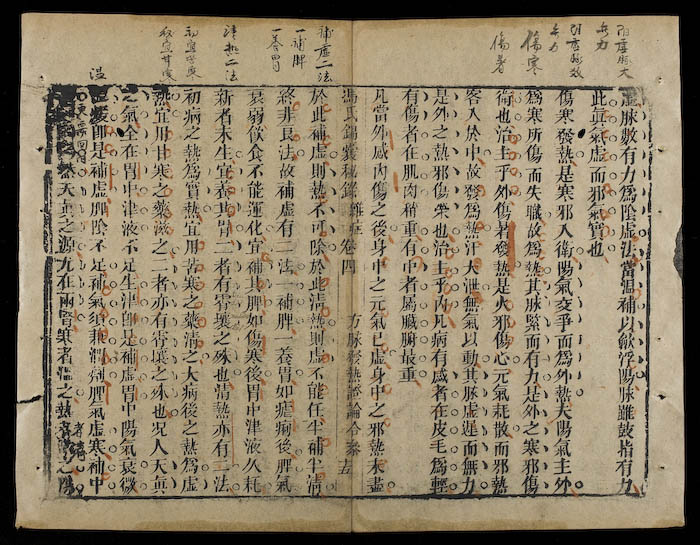 陰虛脉大
無力
陽虛脉數
無力
傷寒
傷暑
補虛二法
一補脾
一養胃
清熱二法
初宜苦寒
溫
虛脉數有力爲陰虛法當溫補以斂浮陽脉雖鼓指有力
此眞氣虛而邪氣實也
傷寒發熱是寒邪入衛陽氣交爭而爲外熱夫陽氣主外
爲寒所傷而失職故爲熱其脉緊而有力是外之寒邪傷
衛也治主乎外傷暑發熱是火邪傷心元氣耗散而邪熱
客入於中故發爲熱汗大泄無氣以動其脉虛遲而無力
是外之熱邪傷榮也治主乎內凡病有感者在皮毛爲輕
有傷者在肌肉稍重有中者屬臟腑最重
凡當外感內傷之後身中之元氣已虛身中之邪熱未盡
馮氏錦囊秘錄 雜症 卷四 方脉發熱證論合參
於此補虛則熱不可除於此清熱則虛不能任半補半清
終非良法故補虛有二法一補脾一養胃如瘧痢後脾氣
衰弱飲食不能運化宜補其脾如傷寒後胃中津液久耗
新者未生宜養其胃二者有霄壤之殊也清熱亦有二法
初病之熱爲實熱宜用苦寒之藥清之大病後之熱爲虛
熱宜用甘寒之藥滋之二者亦有霄壤之殊也況人天眞
之氣全在胃中津液不足生津卽是補虛胃中陽氣衰微
溫煖卽是補虛脾陰不足補氣須兼潤劑脾氣虛寒補中
天眞之源尤在兩腎寒者溫之熱者